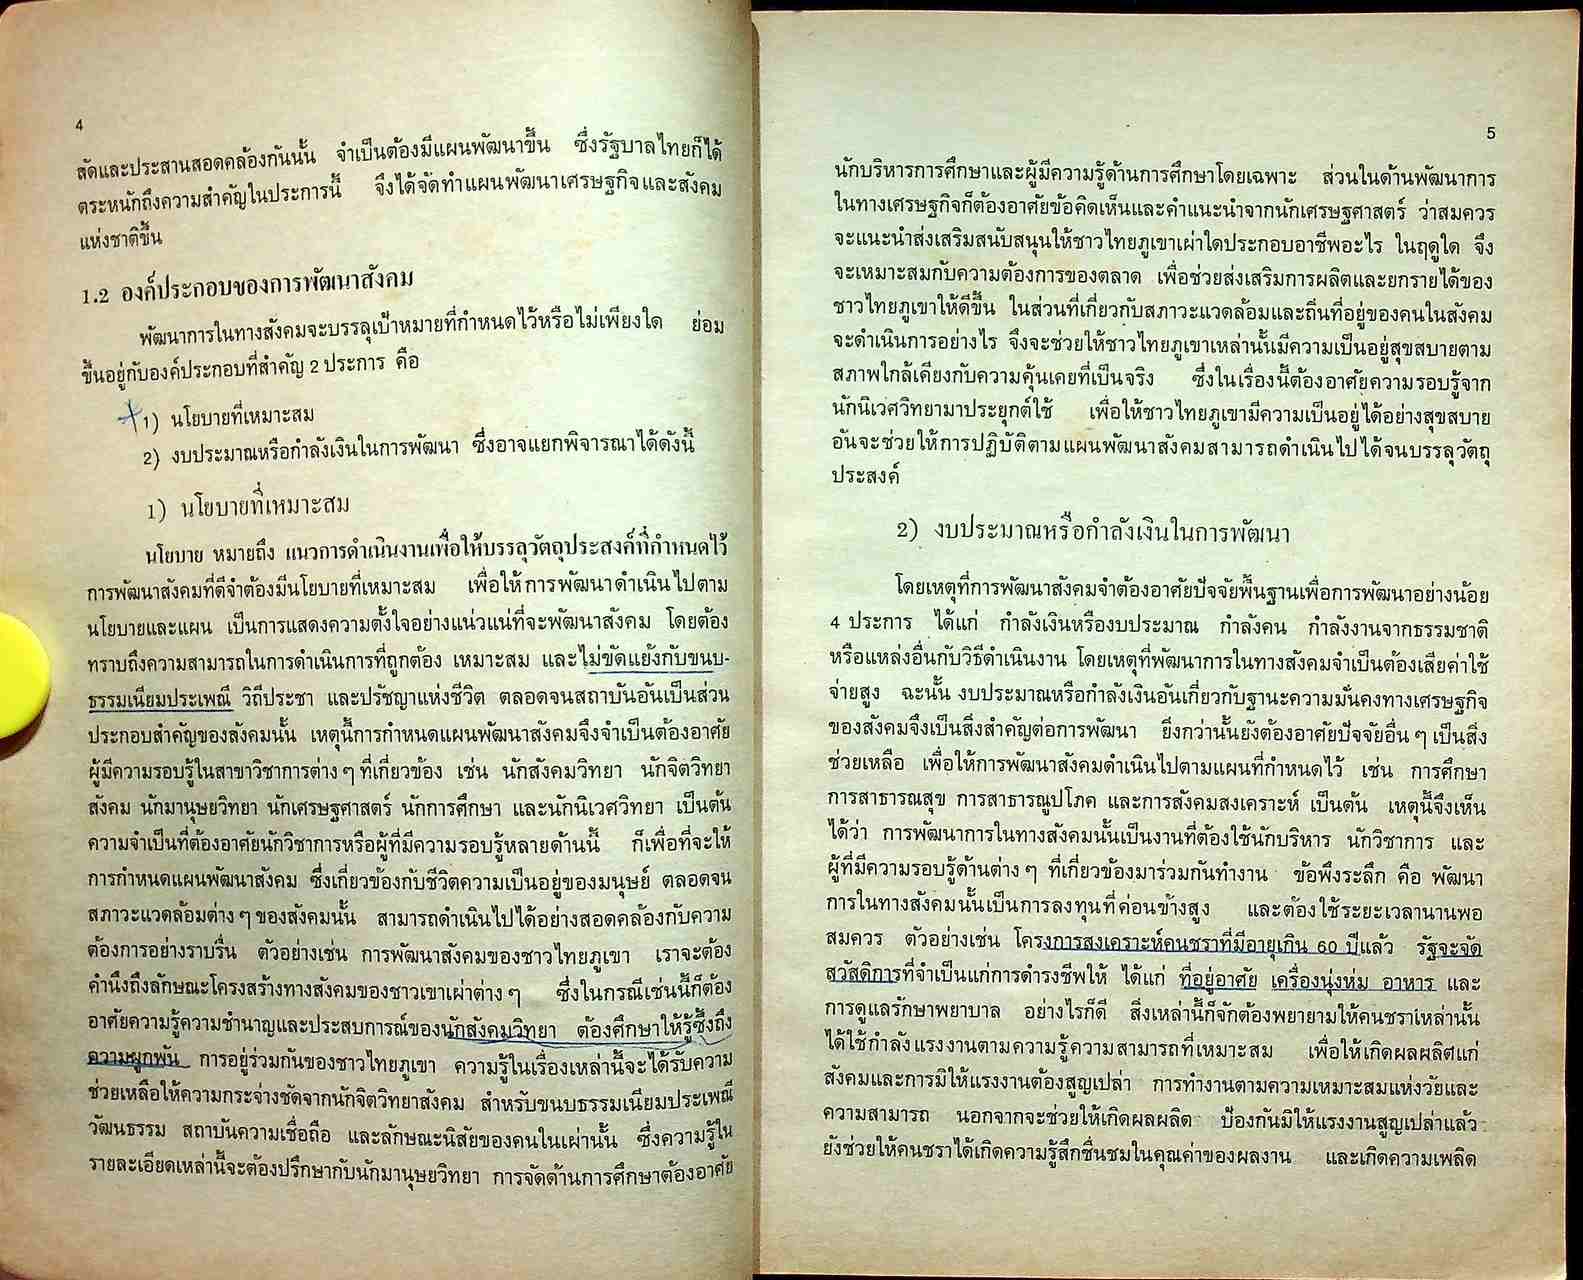 4
สัดและประสานสอดคล้องกันนั้น จำเป็นต้องมีแผนพัฒนาขึ้น ซึ่งรัฐบาลไทยก็ได้
ตระหนักถึงความสำคัญในประการนี้ จึงได้จัดทำแผนพัฒนาเศรษฐกิจและสังคม
แห่งชาติขึ้น
1.2 องค์ประกอบของการพัฒนาสังคม
พัฒนาการในทางสังคมจะบรรลุเป้าหมายที่กำหนดไว้หรือไม่เพียงใด ย่อม
ขึ้นอยู่กับองค์ประกอบที่สำคัญ 2 ประการ คือ
1) นโยบายที่เหมาะสม
2) งบประมาณหรือกำลังเงินในการพัฒนา ซึ่งอาจแยกพิจารณาได้ดังนี้
1) นโยบายที่เหมาะสม
นโยบาย หมายถึง แนวการดำเนินงานเพื่อให้บรรลุวัตถุประสงค์ที่กำหนดไว้
การพัฒนาสังคมที่ดีจำต้องมีนโยบายที่เหมาะสม เพื่อให้การพัฒนาดำเนินไปตาม
นโยบายและแผน เป็นการแสดงความตั้งใจอย่างแน่วแน่ที่จะพัฒนาสังคม โดยต้อง
ทราบถึงความสามารถในการดำเนินการที่ถูกต้อง เหมาะสม และไม่ขัดแย้งกับขนบ-
ธรรมเนียมประเพณี วิถีประชา และปรัชญาแห่งชีวิต ตลอดจนสถาบันอันเป็นส่วน
ประกอบสำคัญของสังคมนั้น เหตุนี้การกำหนดแผนพัฒนาสังคมจึงจำเป็นต้องอาศัย
ผู้มีความรอบรู้ในสาขาวิชาการต่าง ๆ ที่เกี่ยวข้อง เช่น นักสังคมวิทยา นักจิตวิทยา
สังคม นักมานุษยวิทยา นักเศรษฐศาสตร์ นักการศึกษา และนักนิเวศวิทยา เป็นต้น
ความจำเป็นที่ต้องอาศัยนักวิชาการหรือผู้ที่มีความรอบรู้หลายด้านนี้ ก็เพื่อที่จะให้
การกำหนดแผนพัฒนาสังคม ซึ่งเกี่ยวข้องกับชีวิตความเป็นอยู่ของมนุษย์ ตลอดจน
สภาวะแวดล้อมต่าง ๆ ของสังคมนั้น สามารถดำเนินไปได้อย่างสอดคล้องกับความ
ต้องการอย่างราบรื่น ตัวอย่างเช่น การพัฒนาสังคมของชาวไทยภูเขา เราจะต้อง
คำนึงถึงลักษณะโครงสร้างทางสังคมของชาวเขาเผ่าต่าง ๆ ซึ่งในกรณีเช่นนี้ก็ต้อง
อาศัยความรู้ความชำนาญและประสบการณ์ของนักสังคมวิทยา ต้องศึกษาให้รู้ซึ้งถึง
ความผูกพัน การอยู่ร่วมกันของชาวไทยภูเขา ความรู้ในเรื่องเหล่านี้จะได้รับความ
ช่วยเหลือให้ความกระจ่างชัดจากนักจิตวิทยาสังคม สำหรับขนบธรรมเนียมประเพณี
วัฒนธรรม สถาบันความเชื่อถือ และลักษณะนิสัยของคนในเผ่านั้น ซึ่งความรู้ใน
รายละเอียดเหล่านี้จะต้องปรึกษากับนักมานุษยวิทยา การจัดด้านการศึกษาต้องอาศัย
5
นักบริหารการศึกษาและผู้มีความรู้ด้านการศึกษาโดยเฉพาะ ส่วนในด้านพัฒนาการ
ในทางเศรษฐกิจก็ต้องอาศัยข้อคิดเห็นและคำแนะนำจากนักเศรษฐศาสตร์ ว่าสมควร
จะแนะนำส่งเสริมสนับสนุนให้ชาวไทยภูเขาเผ่าใดประกอบอาชีพอะไร ในฤดูใด จึง
จะเหมาะสมกับความต้องการของตลาด เพื่อช่วยส่งเสริมการผลิตและยกรายได้ของ
ชาวไทยภูเขาให้ดีขึ้น ในส่วนที่เกี่ยวกับสภาวะแวดล้อมและถิ่นที่อยู่ของคนในสังคม
จะดำเนินการอย่างไร จึงจะช่วยให้ชาวไทยภูเขาเหล่านั้นมีความเป็นอยู่สุขสบายตาม
สภาพใกล้เคียงกับความคุ้นเคยที่เป็นจริง ซึ่งในเรื่องนี้ต้องอาศัยความรอบรู้จาก
นักนิเวศวิทยามาประยุกต์ใช้ เพื่อให้ชาวไทยภูเขามีความเป็นอยู่ได้อย่างสุขสบาย
อันจะช่วยให้การปฏิบัติตามแผนพัฒนาสังคมสามารถดำเนินไปได้จนบรรลุวัตถุ
ประสงค์
2) งบประมาณหรือกำลังเงินในการพัฒนา
โดยเหตุที่การพัฒนาสังคมจำต้องอาศัยปัจจัยพื้นฐานเพื่อการพัฒนาอย่างน้อย
4 ประการ ได้แก่ กำลังเงินหรืองบประมาณ กำลังคน กำลังงานจากธรรมชาติ
หรือแหล่งอื่นกับวิธีดำเนินงาน โดยเหตุที่พัฒนาการในทางสังคมจำเป็นต้องเสียค่าใช้
จ่ายสูง ฉะนั้น งบประมาณหรือกำลังเงินอันเกี่ยวกับฐานะความมั่นคงทางเศรษฐกิจ
ของสังคมจึงเป็นสิ่งสำคัญต่อการพัฒนา ยิ่งกว่านั้นยังต้องอาศัยปัจจัยอื่น ๆ เป็นสิ่ง
ช่วยเหลือ เพื่อให้การพัฒนาสังคมดำเนินไปตามแผนที่กำหนดไว้ เช่น การศึกษา
การสาธารณสุข การสาธารณูปโภค และการสังคมสงเคราะห์ เป็นต้น เหตุนี้จึงเห็น
ได้ว่า การพัฒนาการในทางสังคมนั้นเป็นงานที่ต้องใช้นักบริหาร นักวิชาการ และ
ผู้ที่มีความรอบรู้ด้านต่าง ๆ ที่เกี่ยวข้องมาร่วมกันทำงาน ข้อพึงระลึก คือ พัฒนา
การในทางสังคมนั้นเป็นการลงทุนที่ค่อนข้างสูง และต้องใช้ระยะเวลานานพอ
สมควร ตัวอย่างเช่น โครงการสงเคราะห์คนชราที่มีอายุเกิน 60 ปีแล้ว รัฐจะจัด
สวัสดิการที่จำเป็นแก่การดำรงชีพให้ ได้แก่ ที่อยู่อาศัย เครื่องนุ่งห่ม อาหาร และ
การดูแลรักษาพยาบาล อย่างไรก็ดี สิ่งเหล่านี้ก็จักต้องพยายามให้คนชราเหล่านั้น
ได้ใช้กำลังแรงงานตามความรู้ความสามารถที่เหมาะสม เพื่อให้เกิดผลผลิตแก่
สังคมและการมิให้แรงงานต้องสูญเปล่า การทำงานตามความเหมาะสมแห่งวัยและ
ความสามารถ นอกจากจะช่วยให้เกิดผลผลิต ป้องกันมิให้แรงงานสูญเปล่าแล้ว
ยังช่วยให้คนชราได้เกิดความรู้สึกชื่นชมในคุณค่าของผลงาน และเกิดความเพลิด